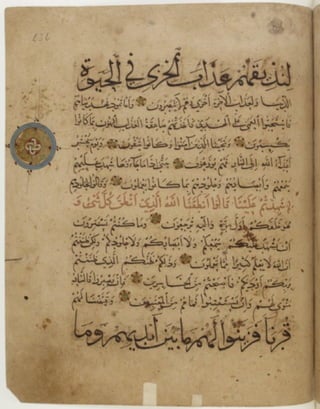 لنذيقهم عذاب الخزي في الحيوة
الدنيا ولعذاب الآخرة أخزى وهم لا ينصرون وأما ثمود فهديناهم
فاستحبوا العمى على الهدى فأخذتهم صاعقة العذاب الهون بما كانوا
يكسبون ونجينا الذين آمنوا وكانوا يتقون ويوم يحشر
أعداء الله إلى النار فهم يوزعون حتى إذا ما جاءوها شهد عليهم
سمعهم وأبصارهم وجلودهم بما كانوا يعملون وقالوا لجلودهم
لم شهدتم علينا قالوا أنطقنا الله الذي أنطق كل شيء و
هو خلقكم أول مرة وإليه ترجعون وما كنتم تستترون
أن يشهد عليكم سمعكم ولا أبصاركم ولا جلودكم ولكن ظننتم
أن الله لا يعلم كثيرا مما تعملون وذلكم ظنكم الذي ظننتم
بربكم أرداكم فأصبحتم من الخاسرين فإن يصبروا فالنار
مثوى لهم وإن يستعتبوا فما هم من المعتبين وقيضنا لهم
قرناء فزينوا لهم ما بين أيديهم وما